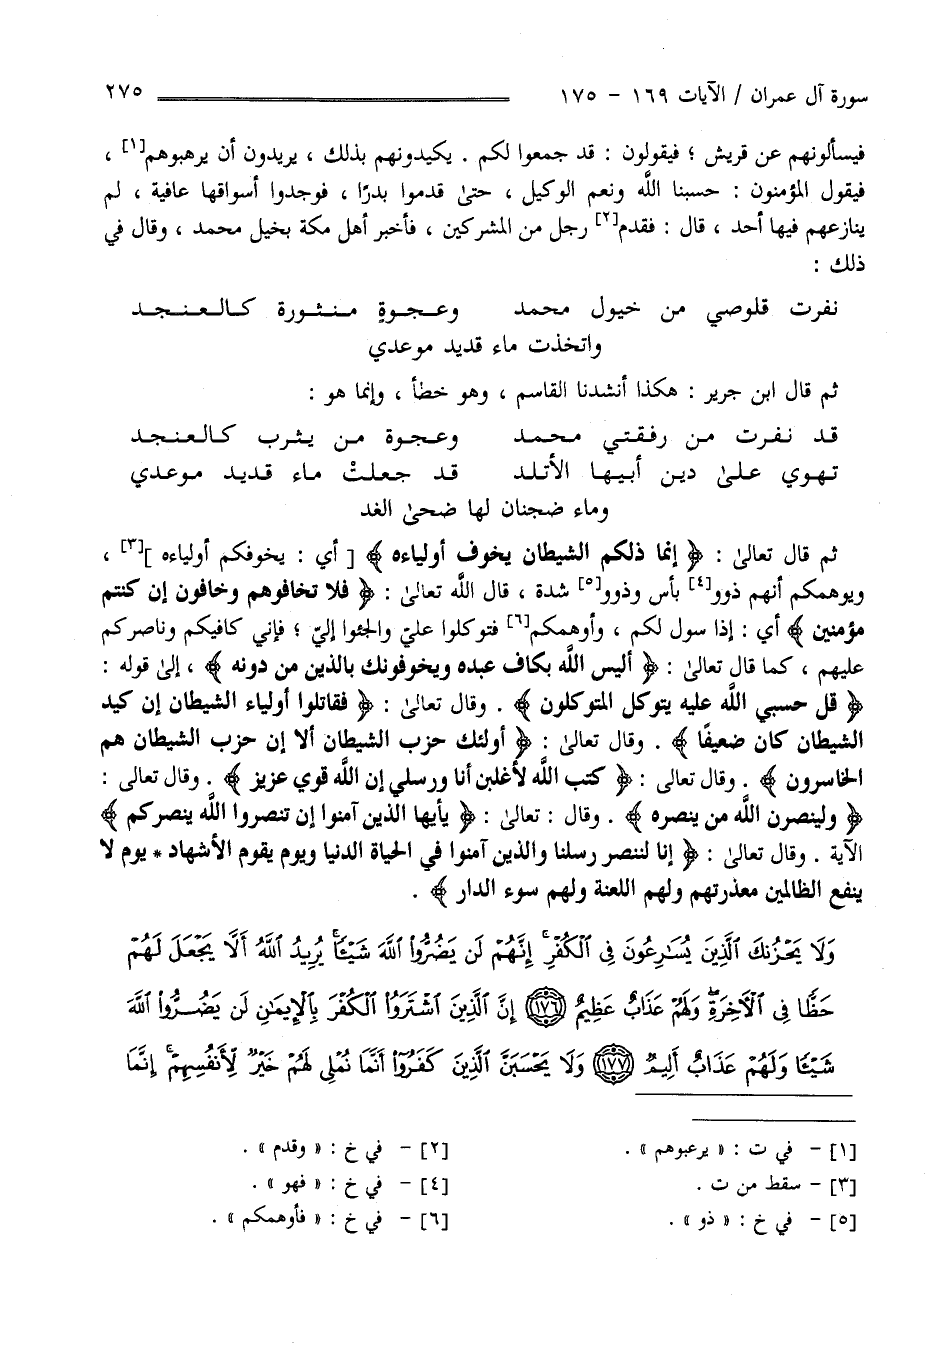 سورة آل عمران / الآيات ١٦٩ - ١٧٥ ٢٧٥
فيسألونهم عن قريش ؛ فيقولون : قد جمعوا لكم . يكيدونهم بذلك ، يريدون أن يرهبوهم[١] ،
فيقول المؤمنون : حسبنا اللَّه ونعم الوكيل ، حتىٰ قدموا بدرًا ، فوجدوا أسواقها عافية ، لم
ينازعهم فيها أحد ، قال : فقدم[٢] رجل من المشركين ، فأخبر أهل مكة بخيل محمد ، وقال في
ذلك :
نفرت قلوصي من خيول محمد وعـجـوةٍ مـنـثـورة كـالـعـنـجـد
واتخذت ماء قديد موعدي
ثم قال ابن جرير : هكذا أنشدنا القاسم ، وهو خطأ ، وإنما هو :
قـد نـفـرت مـن رفـقـتـي مـحـمـد وعـجـوة مـن يـثـرب كـالـعـنـجـد
تـهـوي عـلـىٰ ديـن أبـيـهـا الأتـلـد قـد جـعـلـتْ مـاء قـديـد مـوعـدي
وماء ضجنان لها ضحىٰ الغد
ثم قال تعالىٰ : ﴿ إنما ذلكم الشيطان يخوف أولياءه ﴾ [ أي : يخوفكم أولياءه ][٣] ،
ويوهمكم أنهم ذوو[٤] بأس وذوو[٥] شدة ، قال اللَّه تعالىٰ : ﴿ فلا تخافوهم وخافون إن كنتم
مؤمنين ﴾ أي : إذا سول لكم ، وأوهمكم[٦] فتوكلوا عليّ والجئوا إليّ ؛ فإني كافيكم وناصركم
عليهم ، كما قال تعالىٰ : ﴿ أليس اللَّه بكاف عبده ويخوفونك بالذين من دونه ﴾ ، إلىٰ قوله :
﴿ قل حسبي اللَّه عليه يتوكل المتوكلون ﴾ . وقال تعالىٰ : ﴿ فقاتلوا أولياء الشيطان إن كيد
الشيطان كان ضعيفًا ﴾ . وقال تعالىٰ : ﴿ أولئك حزب الشيطان ألا إن حزب الشيطان هم
الخاسرون ﴾ . وقال تعالى : ﴿ كتب اللَّه لأغلبن أنا ورسلي إن اللَّه قوي عزيز ﴾ . وقال تعالى :
﴿ ولينصرن اللَّه من ينصره ﴾ . وقال : تعالىٰ : ﴿ يأيها الذين آمنوا إن تنصروا اللَّه ينصركم ﴾
الآية . وقال تعالىٰ : ﴿ إنا لننصر رسلنا والذين آمنوا في الحياة الدنيا ويوم يقوم الأشهاد * يوم لا
ينفع الظالمين معذرتهم ولهم اللعنة ولهم سوء الدار ﴾ .
وَلَا يَحْزُنكَ ٱلَّذِينَ يُسَـٰرِعُونَ فِى ٱلْكُفْرِ ۚ إِنَّهُمْ لَن يَضُرُّوا۟ ٱللَّهَ شَيْـًٔا ۗ يُرِيدُ ٱللَّهُ أَلَّا يَجْعَلَ لَهُمْ
حَظًّا فِى ٱلْـَٔاخِرَةِ ۖ وَلَهُمْ عَذَابٌ عَظِيمٌ ١٧٦ إِنَّ ٱلَّذِينَ ٱشْتَرَوُا۟ ٱلْكُفْرَ بِٱلْإِيمَـٰنِ لَن يَضُرُّوا۟ ٱللَّهَ
شَيْـًٔا وَلَهُمْ عَذَابٌ أَلِيمٌ ١٧٧ وَلَا يَحْسَبَنَّ ٱلَّذِينَ كَفَرُوٓا۟ أَنَّمَا نُمْلِى لَهُمْ خَيْرٌ لِّأَنفُسِهِمْ ۚ إِنَّمَا
[١] - في ت : « يرعبوهم » . [٢] - في خ : « وقدم » .
[٣] - سقط من ت . [٤] - في خ : « فهو » .
[٥] - في خ : « ذو » . [٦] - في خ : « فأوهمكم » .